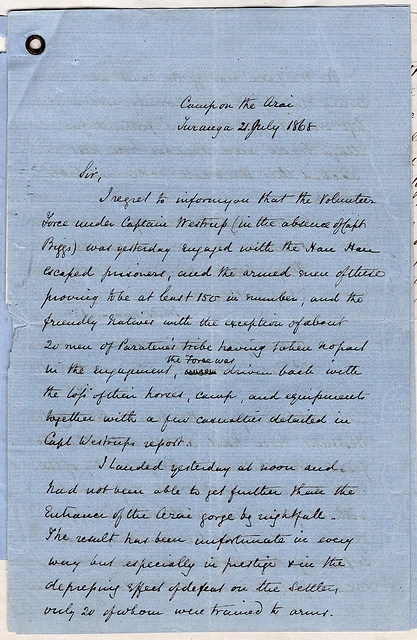 Camp on the Arai
Turanga 21. July 1868
Sir,
I regret to inform you that the Volunteer
Force under Captain Westrup (in the absence of Capt
Biggs) was yesterday engaged with the Hau Hau
escaped prisoners, and the armed men of these
proving to be at least 150 in number, and the
friendly Natives with the exception of about
20 men of Paratene's tribe having taken no part
in the Engagement, the Force was driven back with
the loss of their horses, camp, and equipments
together with a few casualties detailed in
Capt Westrups report.
I landed yesterday at noon and
had not been able to get further than the
Entrance of the Arai gorge by nightfall -
The result has been unfortunate in every
way but especially in prestige & in the
depressing effect of defeat on the Settlers,
only 20 of whom were trained to arms.